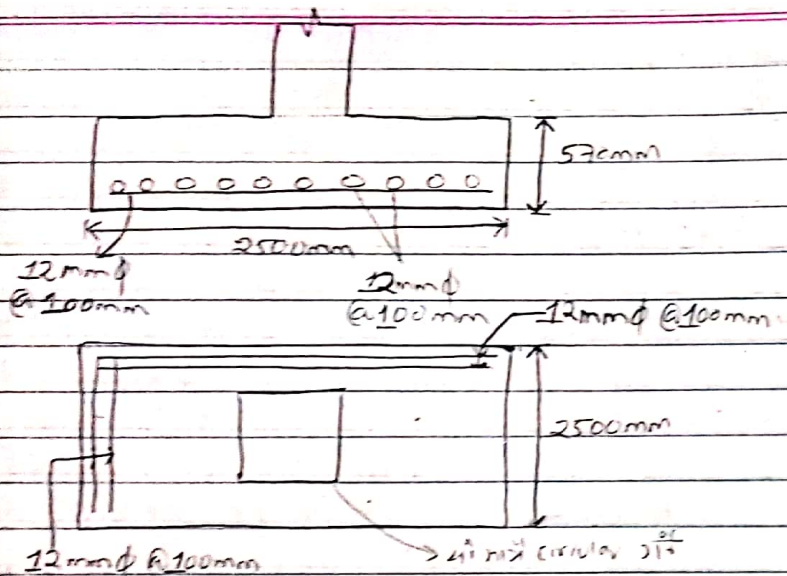 570mm
2500mm
12mmϕ
@ 100mm
12mmϕ
@ 100mm
12mmϕ @ 100mm
2500mm
12mmϕ @ 100mm
circular